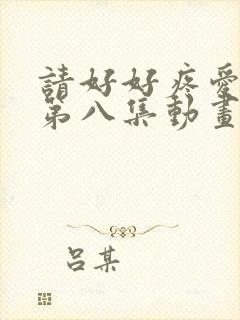 請好好疼愛
第八集動畫
呂某